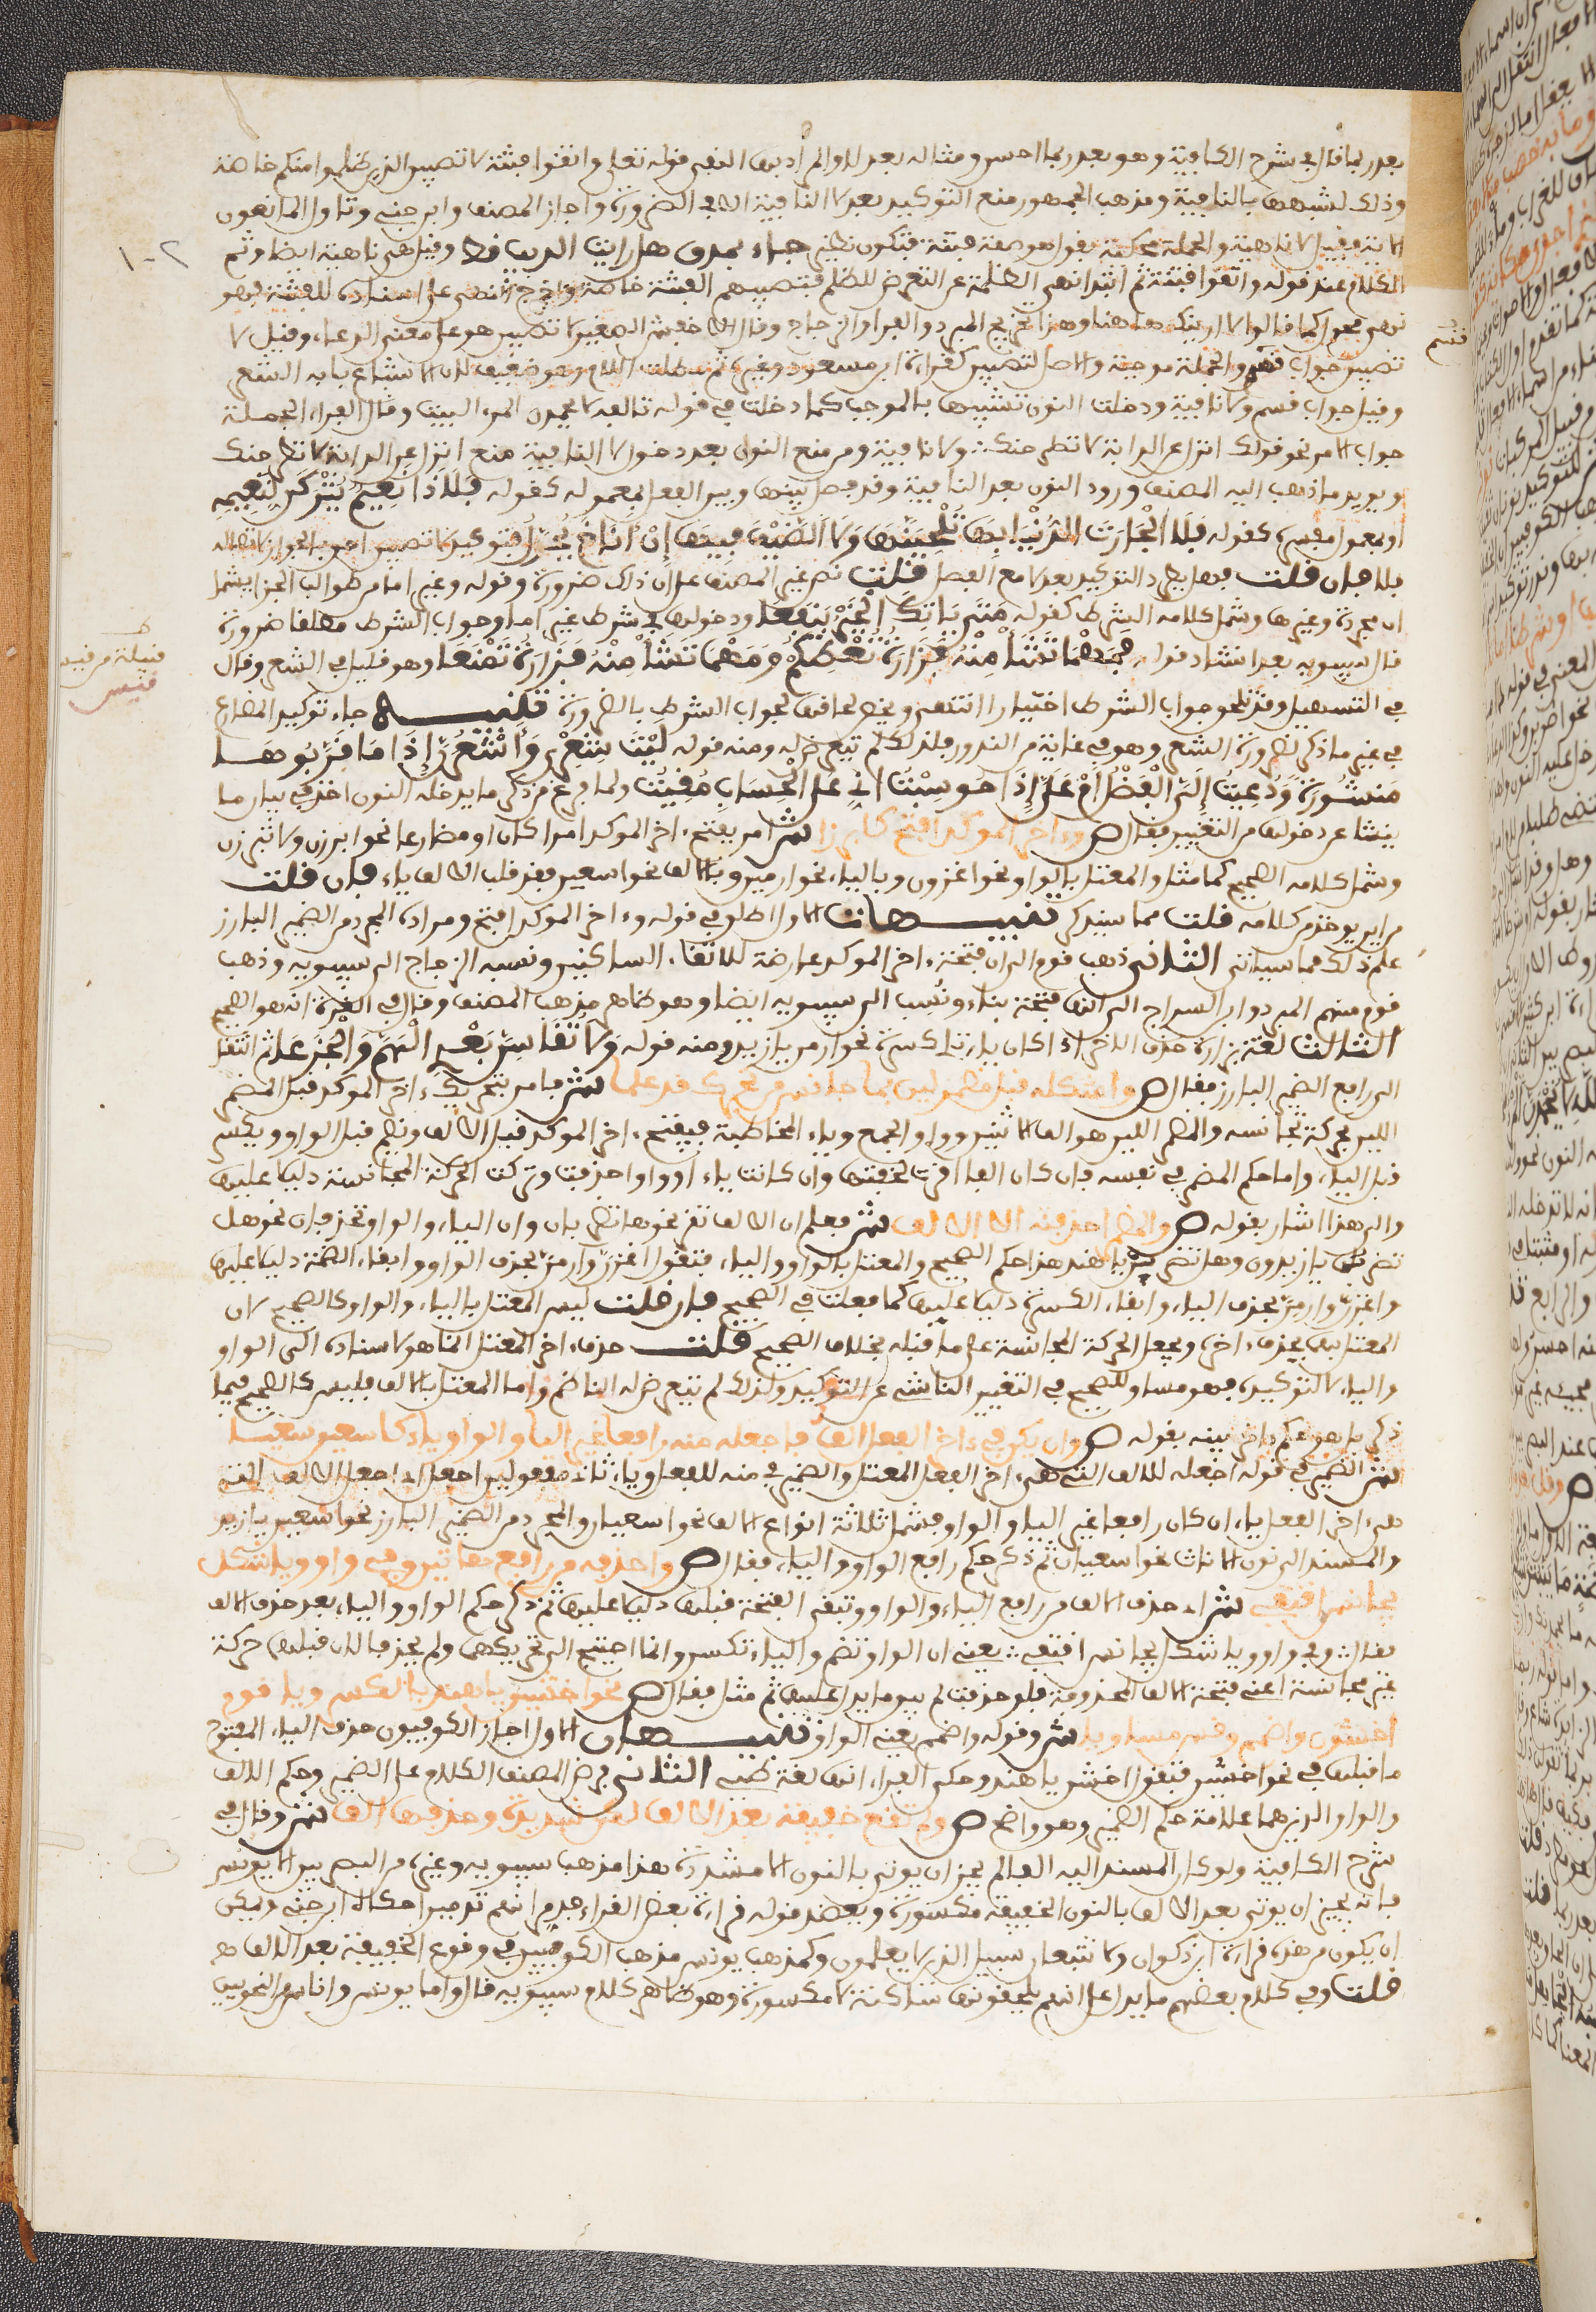 بعد ربما قال في شرح الكافية وهو بعد ربما احسن ومثاله بعد لا والم ادبها النفي قوله تعلى واتقوا فتنة لا تصيبن الذين ظلموا منكم خاصة
وذلك لشبهها بالناهية ومذهب الجمهور منع التوكيد بعد لا النافية الا في الضرورة واجاز المصنف وابن جني وتاول المانعون
الاية فقيل لا ناهية والجملة محكية بقول هو صفة فتنة فتكون نظير جاءو بمذق هل رايت الذيب قط وقيل هي ناهية ايضا وتم
الكلام عند قوله واتقوا فتنة ثم ابتدا نهي الظلمة عن التعرض للظلم فتصيبهم الفتنة خاصة واخرج النهي على اسناده للفتنة فهو
نهي محول كما قالوا لا ارينك هاهنا وهذا تخريج المبرد والفرا والزجاج وقال الاخفش الصغير لا تصيبن هو على معنى الدعاء وقيل لا
تصيبن جواب قسم والجملة موجبة والاصل لتصيبن كقراءة ابن مسعود وغيره ثم مطلت اللام وهو ضعيف لان الاشباع بابه الشعر
وقيل جواب قسم ولا نافية ودخلت النون تشبيها بالموجب كما دخلت في قوله تالله لا يحمدن المرء البيت وقال الفراء الجملة
جواب الامر نحو قولك انزل عن الدابة لا تطرحنك ولا نافية ومن منع النون بعد دخول لا النافية منع انزل عن الدابة لا تطرحنك
ويويد ما ذهب اليه المصنف ورود النون بعد النافية وقد فصل بينها وبين الفعل بمعموله كقوله فَلَا ذَا نَعِيمٍ يُتْرَكَنْ لِنَعِيمِهِ
او بمعمول مفسره كقوله فَلَا الْجَارَةُ الدُّنْيَا بِهَا تَلْحَيَنَّهَا وَلَا الضَّيْفُ فِيهَا إِنْ أَنَاخَ مُحَوَّلُ فتوكيد لا تصيبن احق بالجواز لاتصاله
بلا فان قلت فهل يطرد التوكيد بعد لا مع الفصل قلت نص غير المصنف على ان ذلك ضرورة وقوله وغير اما من طوالب الجزا يشمل
ان مجردة وغيرها وشمل كلامه الشرط كقوله مَتَى يَأْتِكَ الْخَيْرُ يَنْفَعَا ودخولها في شرط غير اما وجواب الشرط مطلقا ضرورة
قال سيبويه بعد انشاد قوله فَمَهْمَا تَشَأْ مِنْهُ فَزَارَةُ تُعْطِكُمْ وَمَهْمَا تَشَأْ مِنْهُ فَزَارَةُ تَمْنَعَا وهو قليل في الشعر وقال
في التسهيل وقد تلحق جواب الشرط اختيارا انتهى ويخص لحاقها لجواب الشرط بالضرورة تنبيه جاء توكيد المضارع
في غير ما ذكر لضرورة الشعر وهو في غاية من الندور فلذلك لم يتعرض له ومنه قوله لَيْتَ شِعْرِي وَأَشْعُرَنَّ إِذَا مَا قَرَّبُوهَا
مَنشُورَةً وَدُعِيتُ إِلَيَّ الْفَضْلُ أَمْ عَلَيَّ إِذَا حُوسِبْتُ إِنِّي عَلَى الْحِسَابِ مُقِيتُ ولما فرغ من ذكر ما يدخله النون اخذ في بيان ما
ينشا عن دخولها من التغيير فقال ص وءاخر الموكد افتح كابرزا ش امر بفتح ءاخر الموكد امرا كان او مضارعا نحو ابرزن ولا تبرزن
وشمل كلامه الصحيح كما مثل والمعتل بالواو نحو اغزون وبالياء نحو ارمين وبالالف نحو اسعين بعد قلب الالف ياء فان قلت
من اين يوخذ من كلامه قلت مما سيذكر تنبيهات الاول اطلق في قوله وءاخر الموكد افتح ومراده المجرد من الضمير البارز
علم ذلك مما سياتي الثاني ذهب قوم الى ان فتحة ءاخر الموكد عارضة لالتقاء الساكنين ونسبه الزجاج الى سيبويه وذهب
قوم منهم المبرد وابن السراج الى انها فتحة بناء ونُسب الى سيبويه ايضا وهو ظاهر مذهب المصنف وقال في الغرة انه هو الصحيح
الثالث لغة فزارة حذف الاخر اذا كان ياء تلي كسرة نحو ارمن يا زيد ومنه قوله وَلَا تُقَاسِنَّ بَعْدِي الْهَمَّ وَالْجَزَعَا ثم انتقل
الى رافع الضمير البارز فقال ص واشكله قبل مضمر لين بما جانس من تحرك قد علما ش فامر بتحريك ءاخر الموكد قبل المضمر
اللين بحركة تجانسه والمضمر اللين هو الف الاثنين وواو الجمع وياء المخاطبة فيفتح ءاخر الموكد قبل الالف ويضم قبل الواو ويكسر
قبل الياء واما حكم المضمر في نفسه فان كان الفا اقرت لخفتها وان كانت ياء او واوا حذفت وتركت الحركة المجانسة دليلا عليها
والى هذا اشار بقوله ص والمضمر احذفنه الا الالف ش فعلم ان الالف تقر نحو هل تضربان وان الياء والواو تحذفان نحو هل
تضربن يا زيدون وهل تضربن يا هند هذا حكم الصحيح والمعتل بالواو والياء فتقول اغزن وارمن بحذف الواو وابقاء الضمة دليلا عليها
واغزن وارمن بحذف الياء وابقاء الكسرة دليلا عليها كما فعلت في الصحيح فان قلت ليس المعتل بالياء والواو كالصحيح لان
المعتل بهما يحذف ءاخره ويجعل الحركة المجانسة على ما قبله بخلاف الصحيح قلت حذف ءاخر المعتل انما هو لاسناده الى الواو
والياء لا لتوكيده فهو مساو للصحيح في التغيير الناشئ عن التوكيد ولذلك لم يتعرض له الناظم واما المعتل بالالف فليس كالصحيح فيما
ذكر بل هو له حكم ءاخر بينه بقوله ص وان يكن في ءاخر الفعل الف فاجعله منه رافعا غير اليا والواو ياء كاسعين سعيا
ش الضمير في قوله اجعله للالف التي هي ءاخر الفعل المعتل والضمير في منه للفعل وياء ثاني مفعولين اجعل اي اجعل الالف التي
هي ءاخر الفعل ياء ان كان رافعا غير الياء والواو فشمل ثلاثة انواع الالف نحو اسعيان والمجرد من الضمير البارز نحو اسعين يا زيد
والمسند الى نون الاناث نحو اسعينان ثم ذكر حكم رافع الواو والياء فقال ص واحذفه من رافع هاتين وفي واو ويا شكل
مجانس اقتفي ش اي حذف الالف من رافع الياء والواو وتبقى الفتحة قبلها دليلا عليها ثم ذكر حكم الواو والياء بعد حذف الالف
فقال وفي واو ويا شكل مجانس اقتفي يعني ان الواو تضم والياء تكسر وانما احتيج الى تحريكهما ولم يحذفا لان قبلهما حركة
غير مجانسة اعني فتحة الالف المحذوفة فلو حذفت لم يبق ما يدل عليها ثم مثل فقال ص نحو اخشين يا هند بالكسر ويا قوم
اخشون واضمم وقس مسويا ش وقوله واضمم يعني الواو تنبيهان الاول اجاز الكوفيون حذف الياء المفتوح
ما قبلها في نحو اخشين فيقول اخشن يا هند وحكى الفراء انها لغة طيئ الثاني فرض المصنف الكلام على الضمير وحكم الالف
والواو الذين هما علامة حكم الضمير وهو واضح ص ولم تقع خفيفة بعد الالف لكن شديدة وحذفها الف ش وقال في
شرح الكافية ولو كان المسند اليه الفا لم يجز ان يوتى بالنون الا مشددة هذا مذهب سيبويه وغيره من البصريين الا يونس
فانه يجيز ان يوتى بعد الالف بالنون الخفيفة مكسورة ويعضد قوله قراءة بعض القراء فدمرانهم تدميرا حكاها ابن جني ويمكن
ان يكون من هذه قراءة ابن ذكوان ولا تتبعان سبيل الذين لا يعلمون وكمذهب يونس مذهب الكوفيين في وقوع الخفيفة بعد الالف
قلت وفي كلام بعضهم ما يدل على انهم يلحقونها ساكنة لا مكسورة وهو ظاهر كلام سيبويه قال واما يونس واناس من النحويين
قسم
قبيلة من قيس